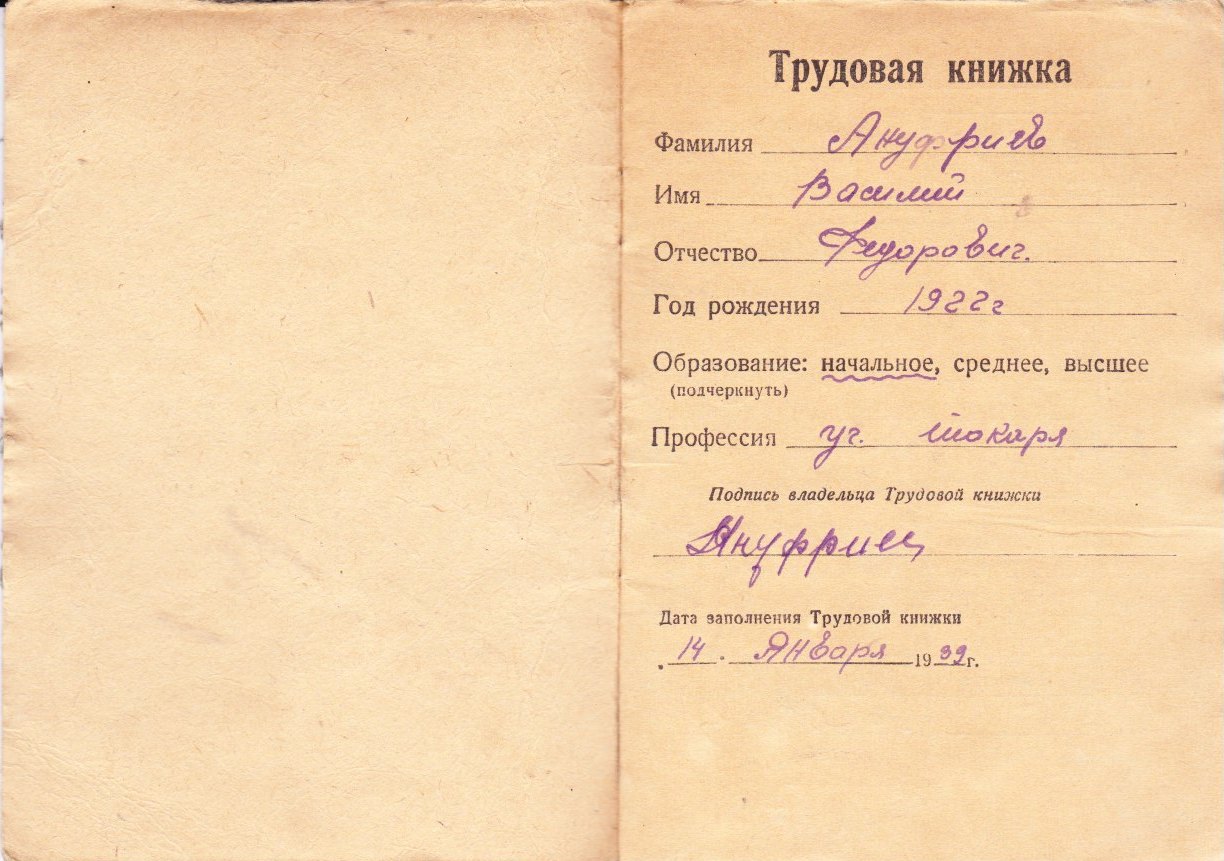 Трудовая книжка
Фамилия Ануфриев
Имя Василий
Отчество Федорович.
Год рождения 1922г
Образование: начальное, среднее, высшее
(подчеркнуть)
Профессия уч. токаря
Подпись владельца Трудовой книжки
Ануфриев
Дата заполнения Трудовой книжки
14. Января 1939г.